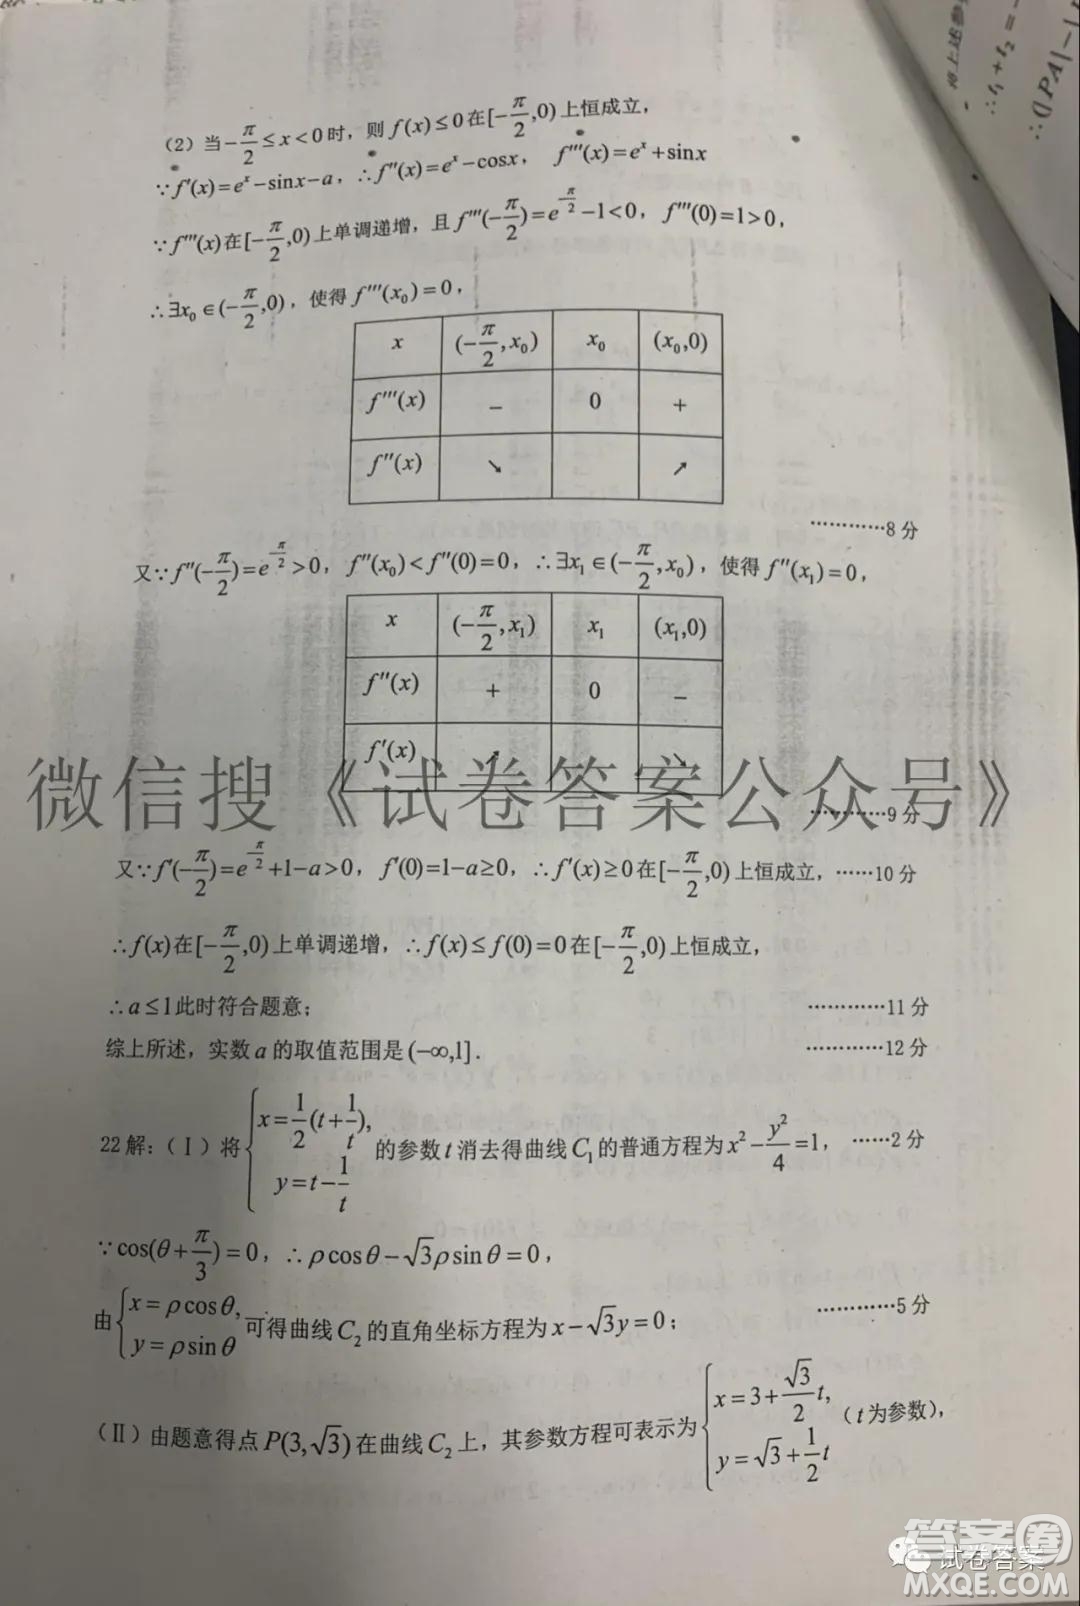 (2)当-π/2≤x<0时，则f(x)≤0在[-π/2,0)上恒成立，
∵f′(x)=eˣ-sinx-a，∴f″(x)=eˣ-cosx， f‴(x)=eˣ+sinx
∵f‴(x)在[-π/2,0)上单调递增，且f‴(-π/2)=e^(-π/2)-1<0，f‴(0)=1>0，
∴∃x₀∈(-π/2,0)，使得f‴(x₀)=0，
x (-π/2,x₀) x₀ (x₀,0)
f‴(x) - 0 +
f″(x) ↘ ↗
…………8分
又∵f″(-π/2)=e^(-π/2)>0，f″(x₀)<f″(0)=0，∴∃x₁∈(-π/2,x₀)，使得f″(x₁)=0，
x (-π/2,x₁) x₁ (x₁,0)
f″(x) + 0 -
f′(x) ↗ ↘
微信搜《试卷答案公众号》
…………9分
又∵f′(-π/2)=e^(-π/2)+1-a>0，f′(0)=1-a≥0，∴f′(x)≥0在[-π/2,0)上恒成立，……10分
∴f(x)在[-π/2,0)上单调递增，∴f(x)≤f(0)=0在[-π/2,0)上恒成立，
∴a≤1此时符合题意； …………11分
综上所述，实数a的取值范围是(-∞,1]. …………12分
22解：(Ⅰ)将{x=1/2(t+1/t), y=t-1/t 的参数t消去得曲线C₁的普通方程为x²-y²/4=1，……2分
∵cos(θ+π/3)=0，∴ρcosθ-√3ρsinθ=0，
由{x=ρcosθ, y=ρsinθ 可得曲线C₂的直角坐标方程为x-√3y=0； …………5分
(Ⅱ)由题意得点P(3,√3)在曲线C₂上，其参数方程可表示为{x=3+√3/2t, y=√3+1/2t (t为参数)，
得上述参
∴t₁+t₂=-
∴(|PA|-|
答案圈
试卷答案
MXQE.COM